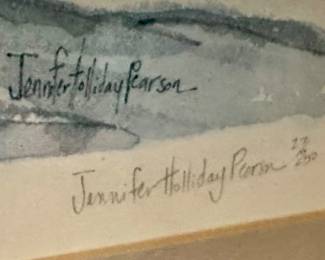 Jennifer Holliday Pearson
Jennifer Holliday Pearson